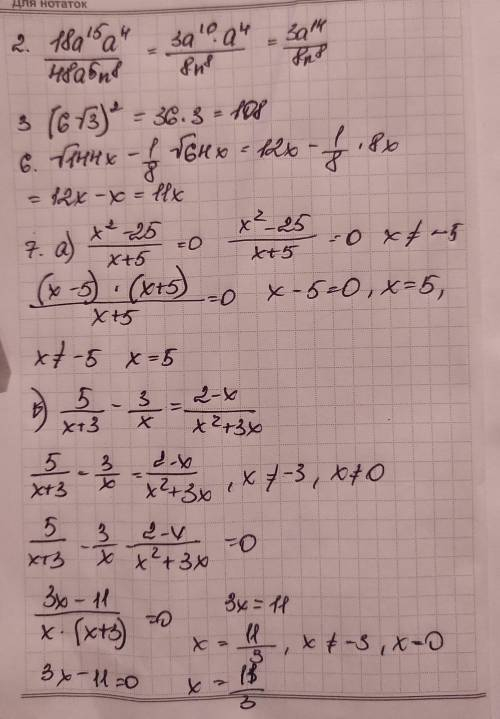 Для нотаток
2. 18a¹⁵a⁴/48a⁵n⁸ = 3a¹⁰·a⁴/8n⁸ = 3a¹⁴/8n⁸
3 (6√3)² = 36·3 = 108
6. √144x - 1/8 √64x = 12x - 1/8 · 8x
= 12x - x = 11x
7. a) x²-25/x+5 = 0 x²-25/x+5 = 0 x ≠ -5
(x-5)·(x+5)/x+5 = 0 x-5=0, x=5,
x ≠ -5 x = 5
б) 5/x+3 - 3/x = 2-x/x²+3x
5/x+3 - 3/x = 2-x/x²+3x, x ≠ -3, x ≠ 0
5/x+3 - 3/x - 2-x/x²+3x = 0
3x-11/x·(x+3) = 0 3x = 11
x = 11/3, x ≠ -3, x=0
3x-11=0 x = 11/3